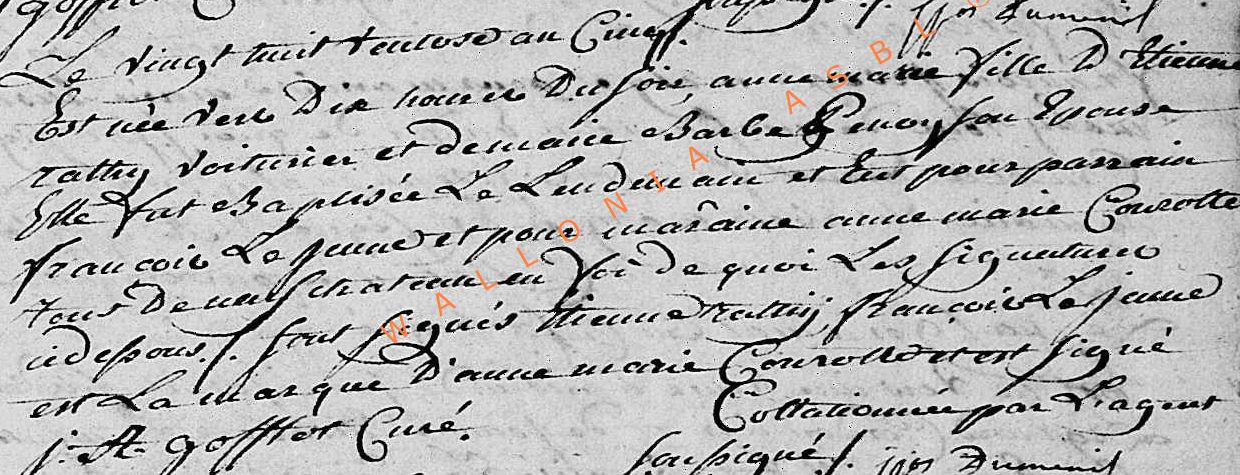 gofftet Curé soupsigné /. jjos Dumenil
Le vingt huit ventose an Cinq.
Est née vers Dix heures Du soir, anne marie fille D'Etienne
rathy voiturier et de marie Barbe son Epouse
Elle fut Baptisée Le Lendemain et Eut pour parrain
françois Le Jeune et pour maraine anne marie Courotte
tous De neufchateau en foi de quoi Les signatures
cidessous /. sont signés Etienne rathy françois Le jeune
est La marque D'anne marie Courotte et est signé
j. A gofftet Curé. Collationnée par L'agent
soupsigné /. jjos Dumenil
WALLONIA ASBL